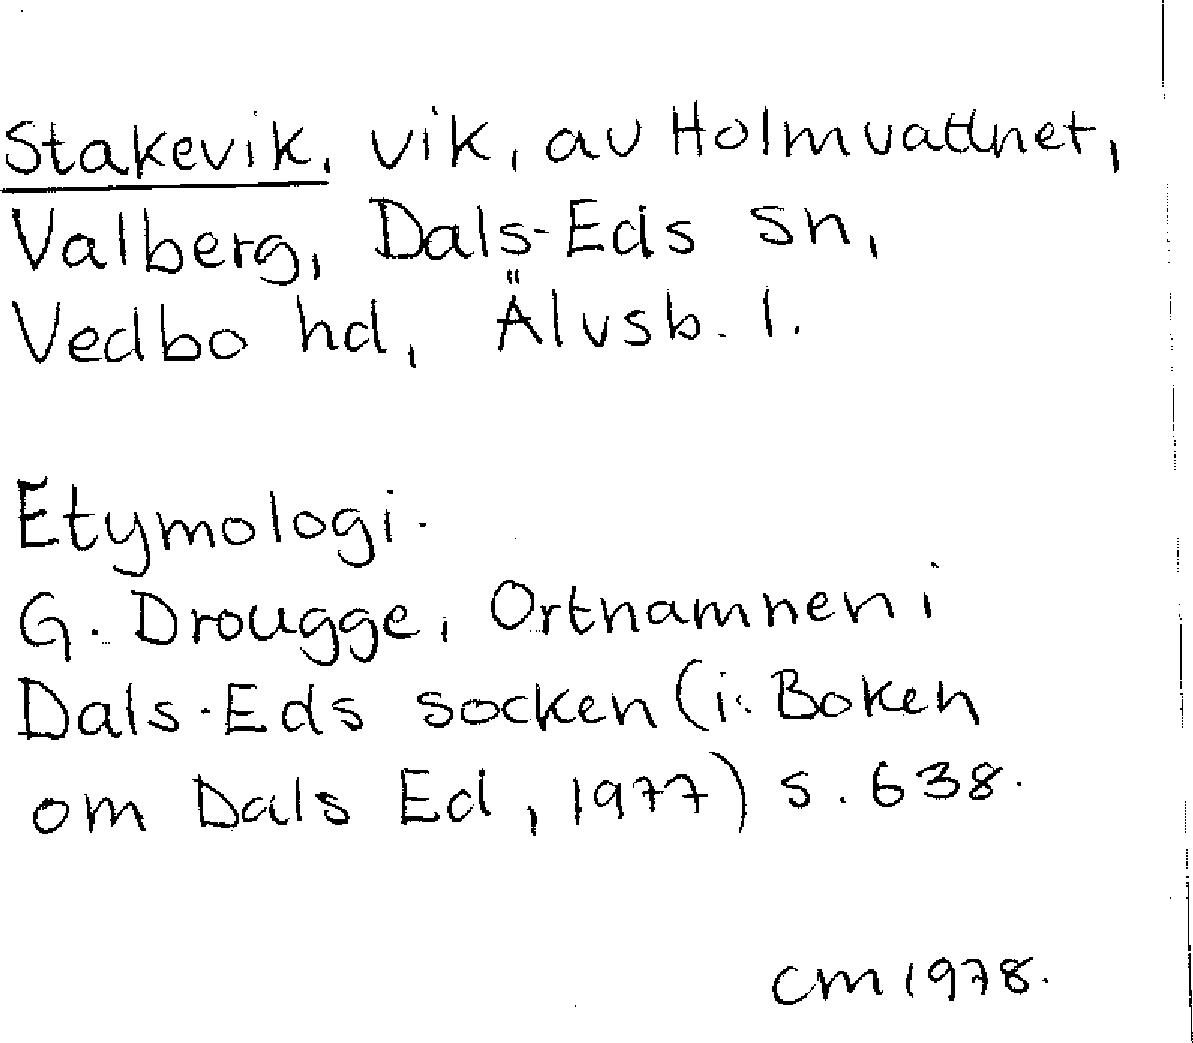 Stakevik, vik, av Holmvattnet,
Valberg, Dals-Eds sn,
Vedbo hd, Älvsb. l.
Etymologi.
G. Drougge, Ortnamnen i
Dals-Eds socken (i: Boken
om Dals Ed, 1977) s. 638.
CM 1978.